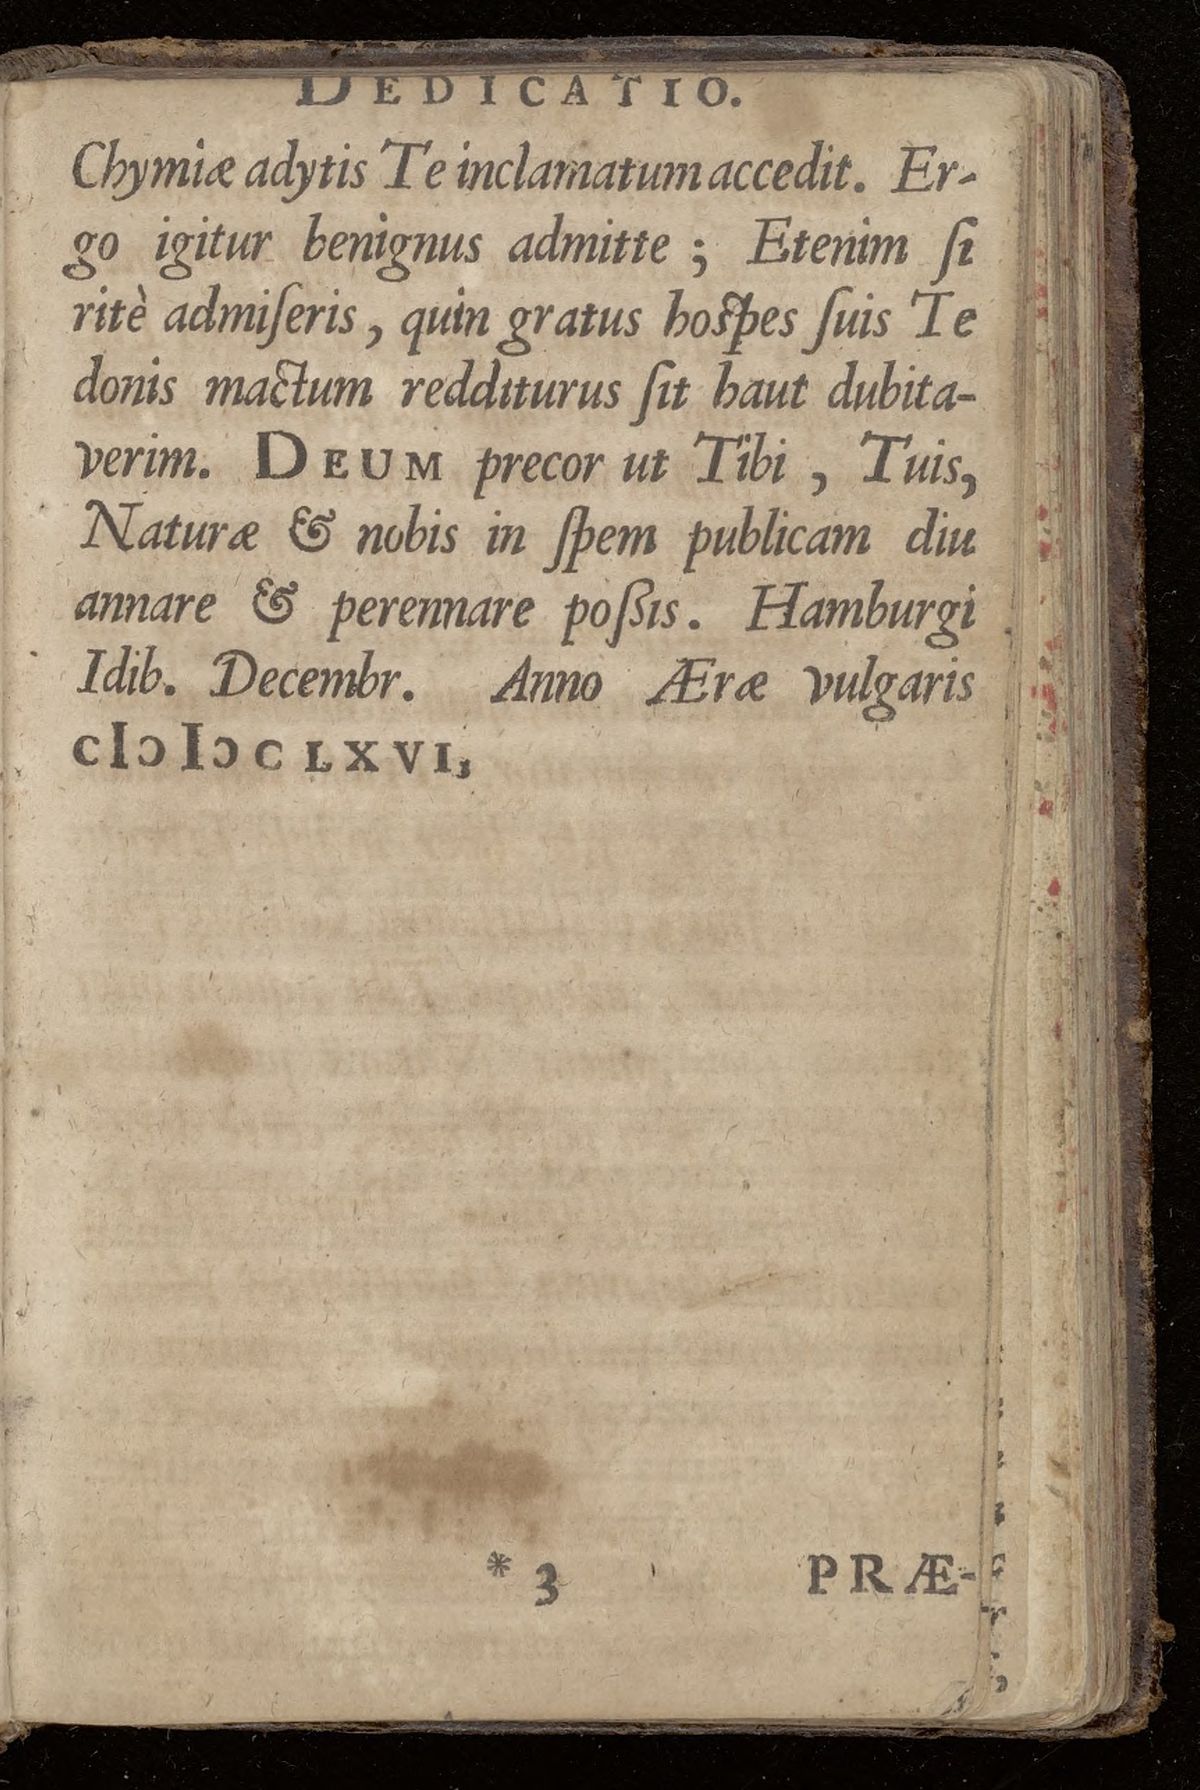 DEDICATIO.
Chymiæ adytis Te inclamatum accedit. Er-
go igitur benignus admitte ; Etenim ſi
ritè admiſeris , quin gratus hoſpes ſuis Te
donis mactum redditurus ſit haut dubita-
verim. DEUM precor ut Tibi , Tuis,
Naturæ & nobis in ſpem publicam diu
annare & perennare poſſis. Hamburgi
Idib. Decembr. Anno Æræ vulgaris
CIↃ IↃ C LXVI,
* 3 PRÆ-